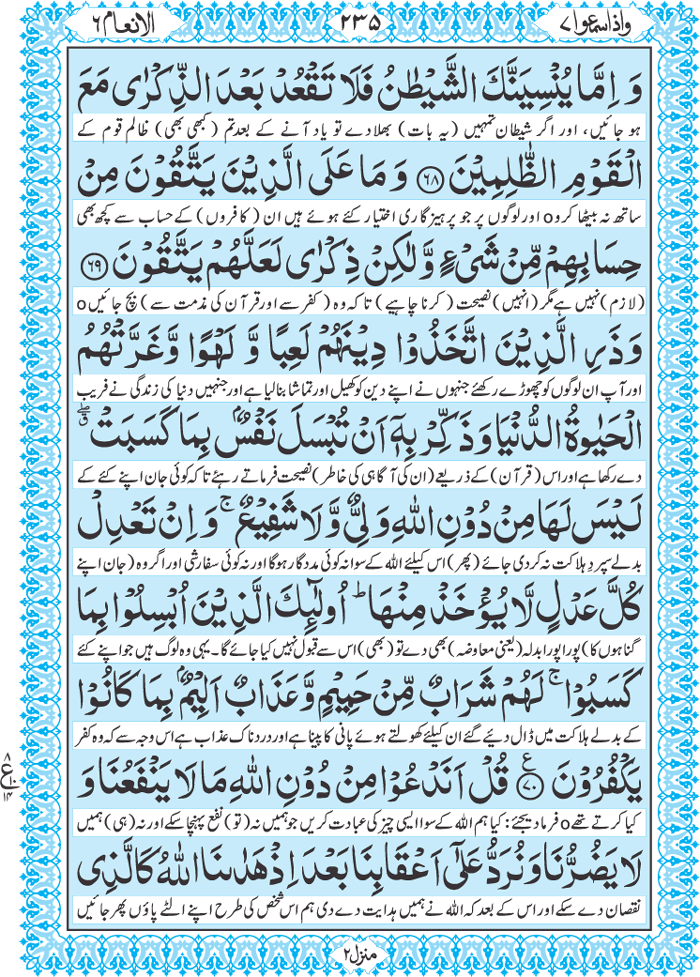 واذاسمعوا ۷
۲۳۵
الانعام ۶
وَ اِمَّا يُنْسِيَنَّكَ الشَّيْطٰنُ فَلَا تَقْعُدْ بَعْدَ الذِّكْرٰى مَعَ
ہو جائیں، اور اگر شیطان تمہیں (یہ بات) بھلا دے تو یاد آنے کے بعد تم (کبھی بھی) ظالم قوم کے
الْقَوْمِ الظّٰلِمِيْنَ ﴿۶۸﴾ وَ مَا عَلَى الَّذِيْنَ يَتَّقُوْنَ مِنْ
ساتھ نہ بیٹھا کرو o اور لوگوں پر جو پرہیزگاری اختیار کئے ہوئے ہیں ان (کافروں) کے حساب سے کچھ بھی
حِسَابِهِمْ مِّنْ شَيْءٍ وَّلٰكِنْ ذِكْرٰى لَعَلَّهُمْ يَتَّقُوْنَ ﴿۶۹﴾
(لازم) نہیں ہے مگر (انہیں) نصیحت (کرنا چاہیے) تاکہ وہ (کفر سے اور قرآن کی مذمت سے) بچ جائیں o
وَذَرِ الَّذِيْنَ اتَّخَذُوْا دِيْنَهُمْ لَعِبًا وَّ لَهْوًا وَّغَرَّتْهُمُ
اور آپ ان لوگوں کو چھوڑے رکھئے جنہوں نے اپنے دین کو کھیل اور تماشا بنا لیا ہے اور جنہیں دنیا کی زندگی نے فریب
الْحَيٰوةُ الدُّنْيَا وَذَكِّرْ بِهٖۤ اَنْ تُبْسَلَ نَفْسٌۢ بِمَا كَسَبَتْ ۖق
دے رکھا ہے اور اس (قرآن) کے ذریعے (ان کی آگاہی کی خاطر) نصیحت فرماتے رہئے تاکہ کوئی جان اپنے کئے کے
لَيْسَ لَهَا مِنْ دُوْنِ اللّٰهِ وَلِيٌّ وَّلَا شَفِيْعٌ ۚ وَ اِنْ تَعْدِلْ
بدلے سپردِ ہلاکت نہ کر دی جائے (پھر) اس کیلئے اللہ کے سوا نہ کوئی مددگار ہوگا اور نہ کوئی سفارشی اور اگر وہ (جان اپنے
كُلَّ عَدْلٍ لَّا يُؤْخَذْ مِنْهَا ؕ اُولٰٓئِكَ الَّذِيْنَ اُبْسِلُوْا بِمَا
گناہوں کا) پورا پورا بدلہ (یعنی معاوضہ) بھی دے تو (بھی) اس سے قبول نہیں کیا جائے گا۔ یہی وہ لوگ ہیں جو اپنے کئے
كَسَبُوْا ۚ لَهُمْ شَرَابٌ مِّنْ حَمِيْمٍ وَّعَذَابٌ اَلِيْمٌۢ بِمَا كَانُوْا
کے بدلے ہلاکت میں ڈال دیئے گئے ان کیلئے کھولتے ہوئے پانی کا پینا ہے اور دردناک عذاب ہے اس وجہ سے کہ وہ کفر
يَكْفُرُوْنَ ﴿۷۰﴾ع قُلْ اَنَدْعُوْا مِنْ دُوْنِ اللّٰهِ مَا لَا يَنْفَعُنَا وَ
کیا کرتے تھے o فرما دیجئے: کیا ہم اللہ کے سوا ایسی چیز کی عبادت کریں جو ہمیں نہ (تو) نفع پہنچا سکے اور نہ (ہی) ہمیں
لَا يَضُرُّنَا وَنُرَدُّ عَلٰٓى اَعْقَابِنَا بَعْدَ اِذْ هَدٰىنَا اللّٰهُ كَالَّذِي
نقصان دے سکے اور اس کے بعد کہ اللہ نے ہمیں ہدایت دے دی ہم اس شخص کی طرح اپنے الٹے پاؤں پھر جائیں
منزل ۲